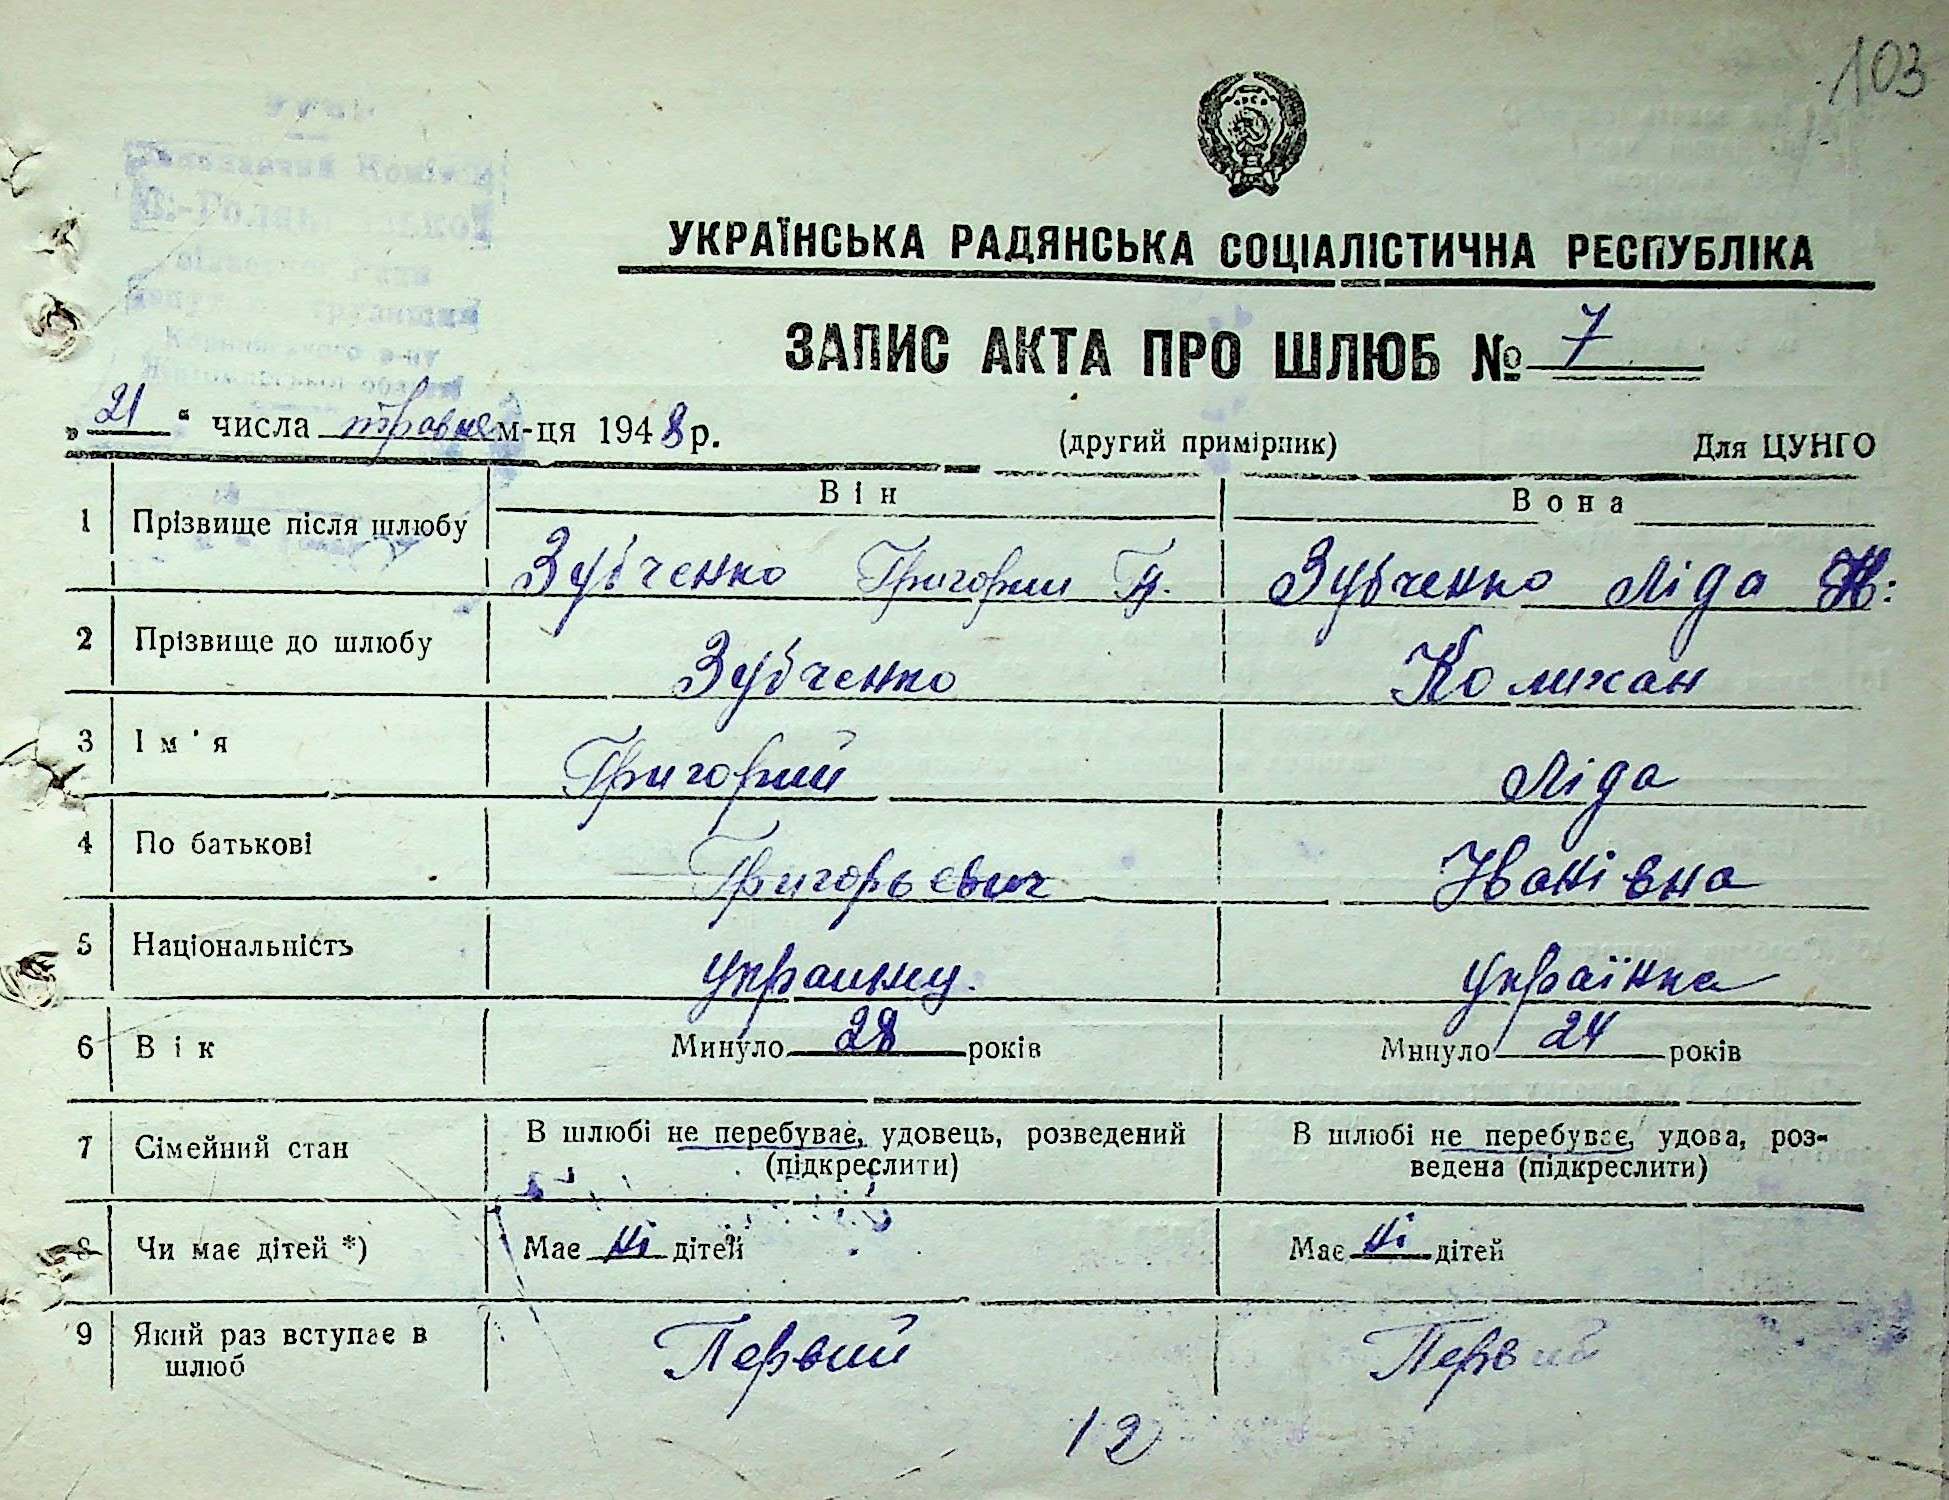 103
УКРАЇНСЬКА РАДЯНСЬКА СОЦІАЛІСТИЧНА РЕСПУБЛІКА
ЗАПИС АКТА ПРО ШЛЮБ № 7
„ 21 “ числа травня м-ця 1948 р. (другий примірник) Для ЦУНГО
Він Вона
1 Прізвище після шлюбу Зубченко Григорий Г. Зубченко Ліда
2 Прізвище до шлюбу Зубченко Колихан
3 Ім'я Григорий Ліда
4 По батькові Григорьевич Иванівна
5 Національність украинец. українка
6 Вік Минуло 28 років Минуло 24 років
7 Сімейний стан В шлюбі не перебуває, удовець, розведений (підкреслити) В шлюбі не перебуває, удова, роз-
ведена (підкреслити)
8 Чи має дітей *) Має ні дітей Має ні дітей
9 Який раз вступає в шлюб Первий Первий
12